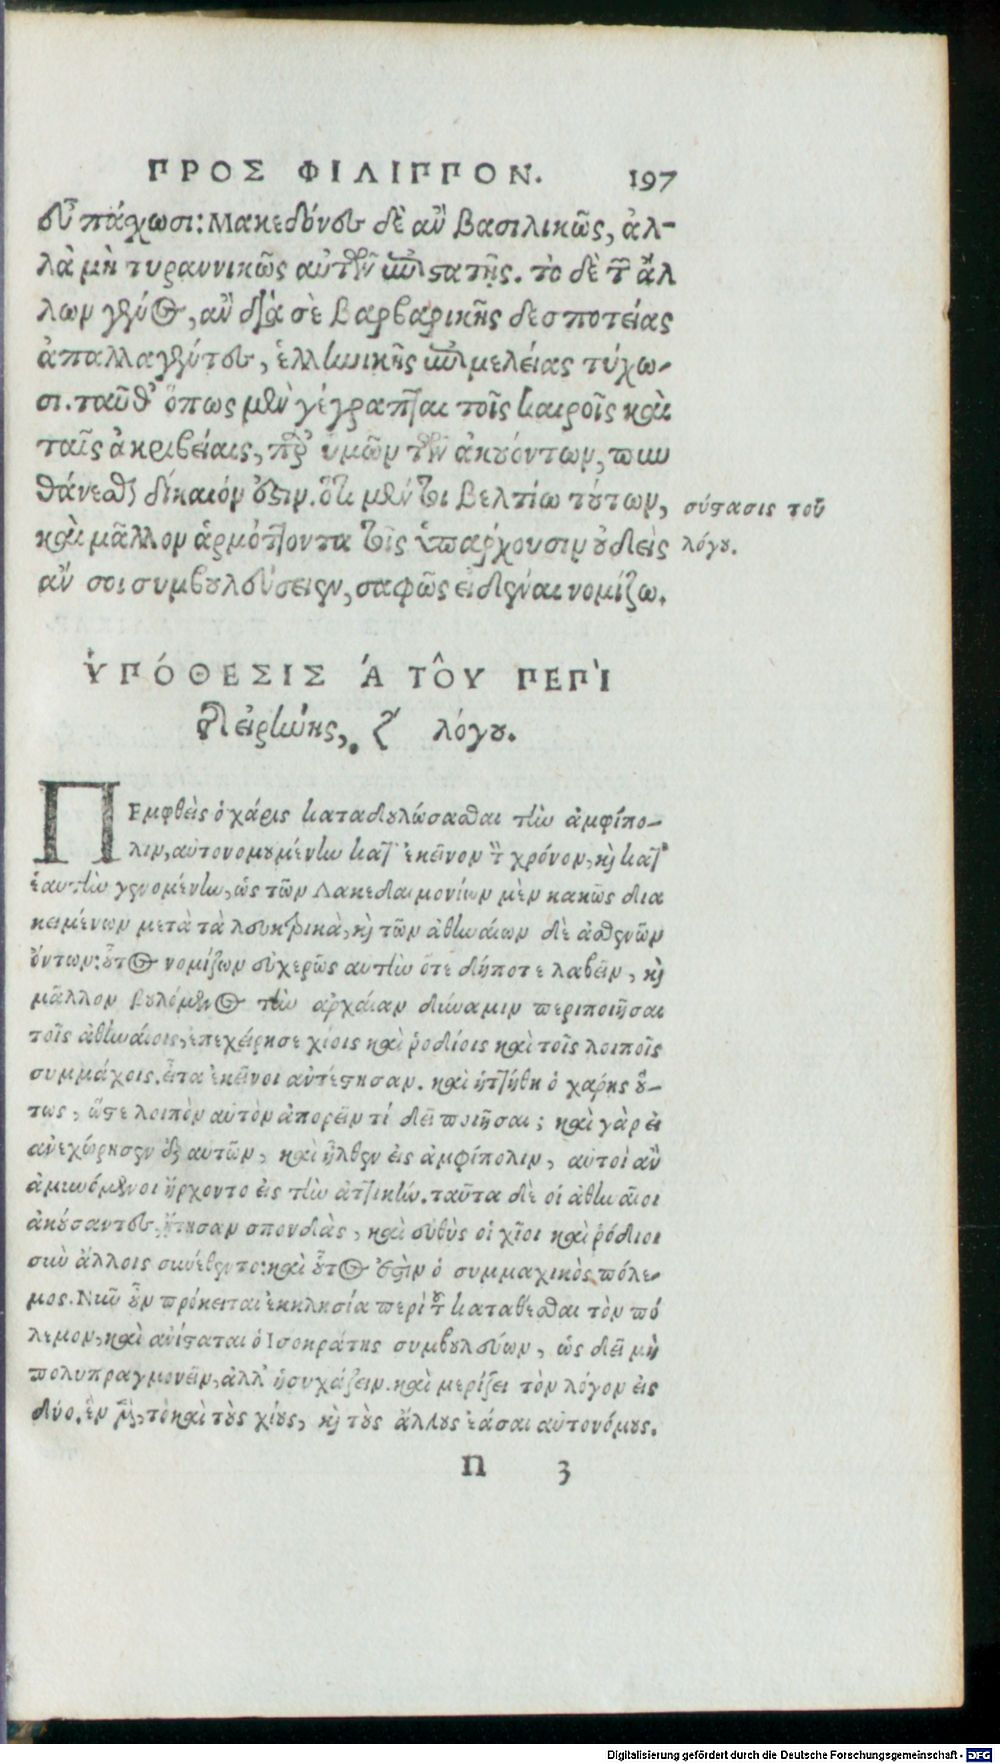 ΠΡΟΣ ΦΙΛΙΠΠΟΝ. 197
εὖ πάχωσι: Μακεδόνες δὲ ἂν βασιλικῶς, ἀλ-
λὰ μὴ τυραννικῶς αὐτῶν ἐπιστατῇς. τὸ δὲ τῶν ἄλ
λων γένος, ἂν διὰ σὲ βαρβαρικῆς δεσποτείας
ἀπαλλαγέντες, ἑλληνικῆς ἐπιμελείας τύχω-
σι. ταῦθ' ὅπως μὲν γέγραπται τοῖς καιροῖς καὶ
ταῖς ἀκριβείαις, παρ' ὑμῶν τῶν ἀκουόντων, πυν
θάνεσθαι δίκαιόν ἐστιν. ὅτι μέντοι βελτίω τούτων,
καὶ μᾶλλον ἁρμόττοντα τοῖς ὑπάρχουσιν οὐδεὶς
ἄν σοι συμβουλεύσειεν, σαφῶς εἰδέναι νομίζω.
σύστασις τοῦ
λόγου.
ὙΠΌΘΕΣΙΣ Ά ΤΟ͂Υ ΠΕΡῚ
εἰρήνης, ζ' λόγου.
ΠΕμφθεὶς ὁ χάρις καταδουλώσασθαι τὴν ἀμφίπο-
λιν, αὐτονομουμένην κατ' ἐκεῖνον τὸν χρόνον, καὶ καθ'
ἑαυτὴν γενομένην, ὡς τῶν Λακεδαιμονίων μὲν κακῶς δια
κειμένων μετὰ τὰ λευκτρικὰ, καὶ τῶν ἀθηναίων δὲ ἀσθενῶν
ὄντων: οὗτος νομίζων εὐχερῶς αυτὴν ὅτε δήποτε λαβεῖν, καὶ
μᾶλλον βουλόμενος τὴν ἀρχαίαν δύναμιν περιποιῆσαι
τοῖς ἀθηναίοις, ἐπεχείρησε χίοις καὶ ῥοδίοις καὶ τοῖς λοιποῖς
συμμάχοις. εἶτα ἐκεῖνοι αὐτέστησαν. καὶ ἡττήθη ὁ χάρης οὕ-
τως, ὥστε λοιπὸν αὐτὸν ἀπορεῖν τί δεῖ ποιῆσαι; καὶ γὰρ εἰ
ἀνεχώρησεν ἐξ αυτῶν, καὶ ἦλθεν εἰς ἀμφίπολιν, αὐτοὶ ἂν
ἀμυνόμενοι ἤρχοντο εἰς τὴν ἀττικήν. ταῦτα δὲ οἱ ἀθηναῖοι
ἀκούσαντες, ᾔτησαν σπονδὰς, καὶ εὐθὺς οἱ χῖοι καὶ ῥόδιοι
σὺν ἄλλοις συνέθεντο: καὶ οὗτος ἐστὶν ὁ συμμαχικὸς πόλε-
μος. Νῦν οὖν πρόκειται ἐκκλησία περὶ τοῦ καταθέσθαι τὸν πό
λεμον, καὶ ἀνίσταται ὁ Ισοκράτης συμβουλεύων, ὡς δεῖ μὴ
πολυπραγμονεῖν, ἀλλ' ἡσυχάζειν. καὶ μερίζει τὸν λόγον εἰς
δύο. ἓν μὲν, τὸ καὶ τοὺς χίους, καὶ τοὺς ἄλλους ἐάσαι αὐτονόμους.
Π 3
Digitalisierung gefördert durch die Deutsche Forschungsgemeinschaft - DFG